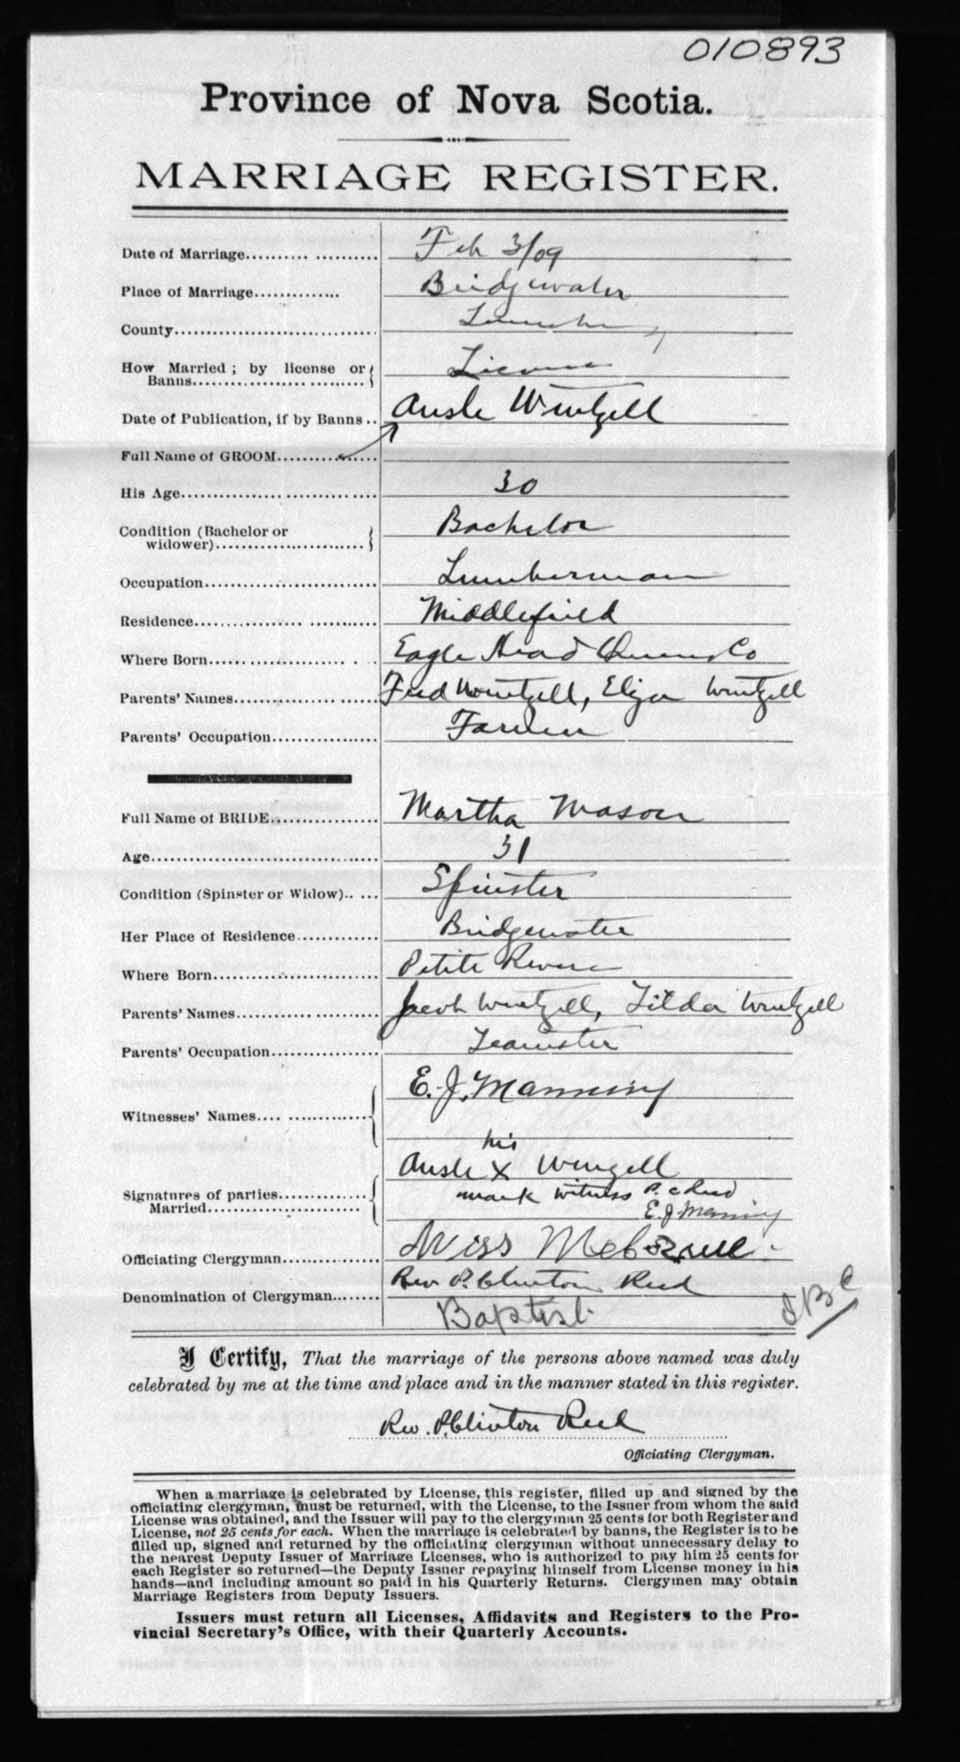 010893
Province of Nova Scotia.
MARRIAGE REGISTER.
Date of Marriage.......... Feb 3/09
Place of Marriage.............. Bridgewater
County............................
How Married ; by license or Banns.................. License
Date of Publication, if by Banns .. Ansle Wentzell
Full Name of GROOM................
His Age............................ 30
Condition (Bachelor or widower)........................ Bachelor
Occupation........................ Lumberman
Residence......................... Middlefield
Where Born....................... Eagle Head Queens Co
Parents' Names................... Fred Wentzell, Eliza Wentzell
Parents' Occupation................. Farmer
Full Name of BRIDE................. Martha Mason
Age................................ 31
Condition (Spinster or Widow)..... Spinster
Her Place of Residence............. Bridgewater
Where Born........................ Petite Riviere
Parents' Names.................... Jacob Wentzell, Tilda Wentzell
Parents' Occupation................ Teamster
Witnesses' Names.... ............. E. J. Manning
his
Ansle X Wentzell
Signatures of parties Married........................ mark witness P. C Reed
E. J Manning
Officiating Clergyman............... Miss
Rev P. Clinton Reed
Denomination of Clergyman........ Baptist
I Certify, That the marriage of the persons above named was duly
celebrated by me at the time and place and in the manner stated in this register.
Rev. P. Clinton Reed
Officiating Clergyman.
When a marriage is celebrated by License, this register, filled up and signed by the
officiating clergyman, must be returned, with the License, to the Issuer from whom the said
License was obtained, and the Issuer will pay to the clergyman 25 cents for both Register and
License, not 25 cents for each. When the marriage is celebrated by banns, the Register is to be
filled up, signed and returned by the officiating clergyman without unnecessary delay to
the nearest Deputy Issuer of Marriage Licenses, who is authorized to pay him 25 cents for
each Register so returned—the Deputy Issuer repaying himself from License money in his
hands—and including amount so paid in his Quarterly Returns. Clergymen may obtain
Marriage Registers from Deputy Issuers.
Issuers must return all Licenses, Affidavits and Registers to the Pro-
vincial Secretary's Office, with their Quarterly Accounts.